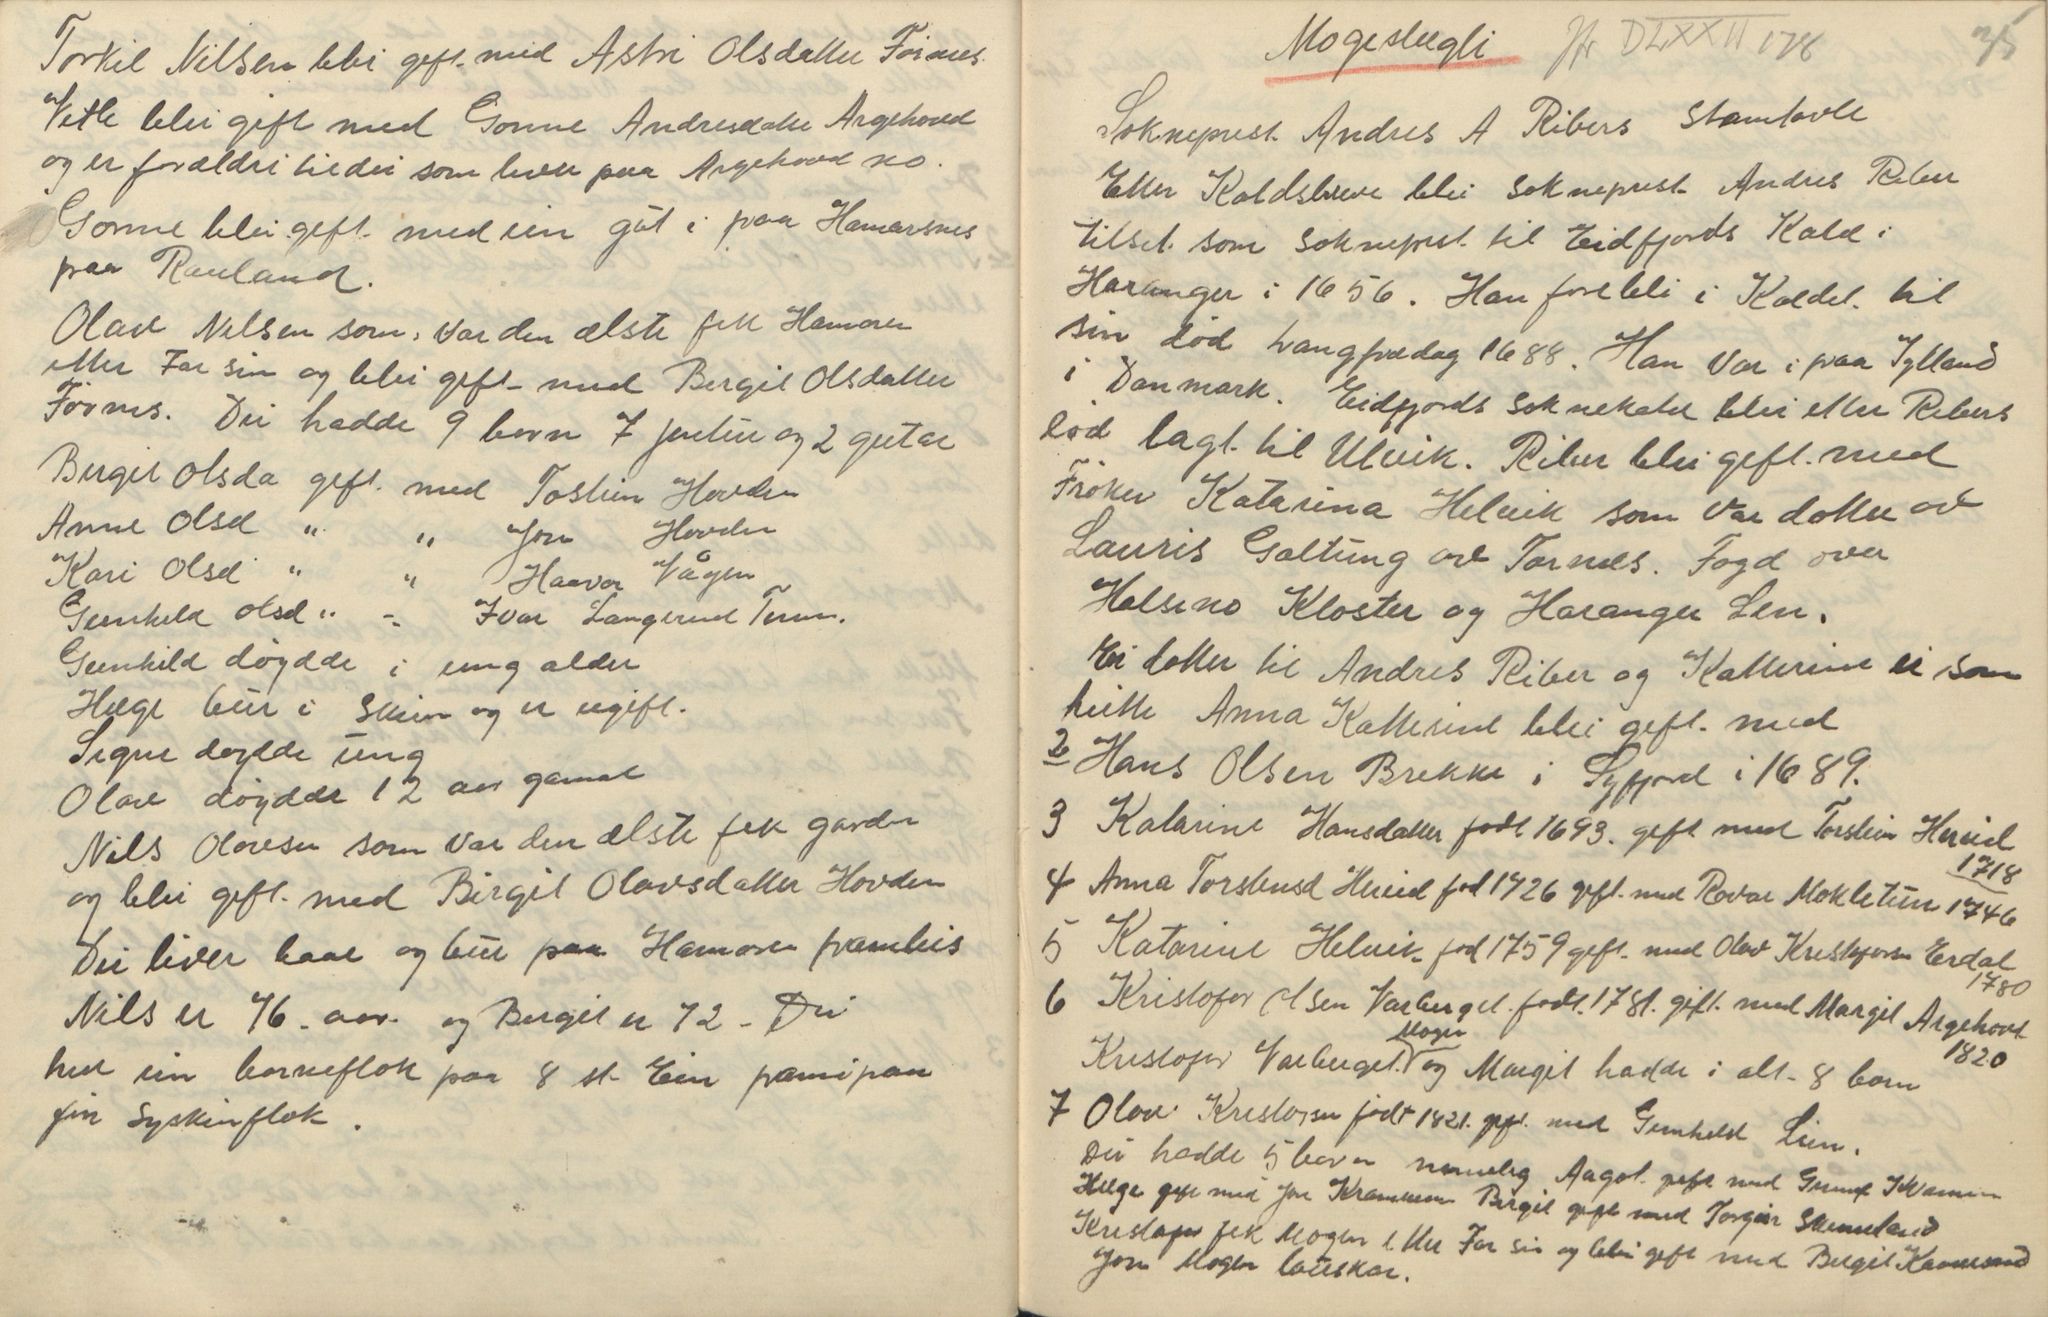 Torkil Nilsen blei gift med Astri OlsdatterFørnes.
Vetle blei gift med Gonne Andresdatter Argehovd
og er forældri til dei som lever paa Argehovd no.
Gonne blei gift med ein gut i paa Hamarsnes
paa Rauland.
Olav Nilsen som var den ælste fek Hamoren
etter Far sin og blei gift med Bergit Olsdatter
Førnes. Dei hadde 9 born 7 jentur og 2 gutar
Bergit Olsda gift med Tostein Hovden
Anne Olsd " " Jon Hovden
Kari Olsd " " Haavor Vågen
Gunhild Olsd " - Ivar Langerud Tinn.
Gunhild døydde i ung alder
Hæge bur i Skien og er ugift.
Signe døydde ung
Olav døydde 12 aar gamal
Nils Olavsen som var den ælste fek garden
og blei gift med Birgit Olavsdatter Hovden
Dei liver baae og bur paa Hamoren framleis
Nils er 76 aar og Bergit er 72 - Dei
hev ein borneflok paa 8 st. Ein framifraa
fin Syskinflok.
Mogeslegti Jfr DLXXII 178
35
Sokneprest Andres A Ribers Stamtavle
Etter Kaldsbreve blei sokneprest Andres Riber
tilset som sokneprest til Eidfjords Kald i
Haranger i 1656. Han forebli i Kaldet til
sin død Langfredag 1688. Han var i paa Jylland
i Danmark. Eidfjords soknekald blei etter Ribers
død lagt til Ulvik. Riber blei gift med
Frøken Katarina Helvik som var dotter av
Lauris Galtung av Torsnes. Fogd over
Halsno Kloster og Haranger Len.
Ei dotter til Andres Riber og Katterine ei som
heitte Anna Katterine blei gift med
2 Hans Olsen Brekke i Syfjord i 1689.
3 Katarine Hansdatter født 1693. gift med Torstein Hereid
1718
4 Anna Torsteinsd Hereid fød 1726 gift med Rovar Mokletun 1746
5 Katarine Helvik fød 1759 gift med Olav Kristofersen Erdal
1780
6 Kristofer Olsen Varberget født 1781. gift med Margit Argehovd
1820
Mogen
Kristofer Varberget og Margit hadde i alt 8 born
7 Olav Kristofsen født 1821. gift med Gunhild Lien.
Dei hadde 5 born nemeleg Aagot gift med Gunnulf Kvammen
Hæge gift med Jon Birgit gift med Torgeir Skinneland
Kristofer fek Mogen etter Far sin og blei gift med Bergit
Jon Mogen lauskar.